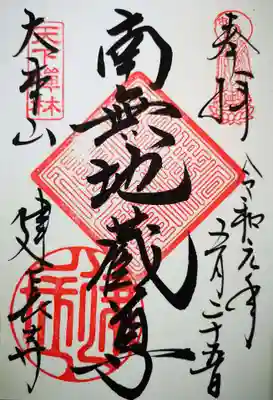 奉拝
令和元年五月二十五日
南無地蔵尊
天下禅林
大本山
建長寺